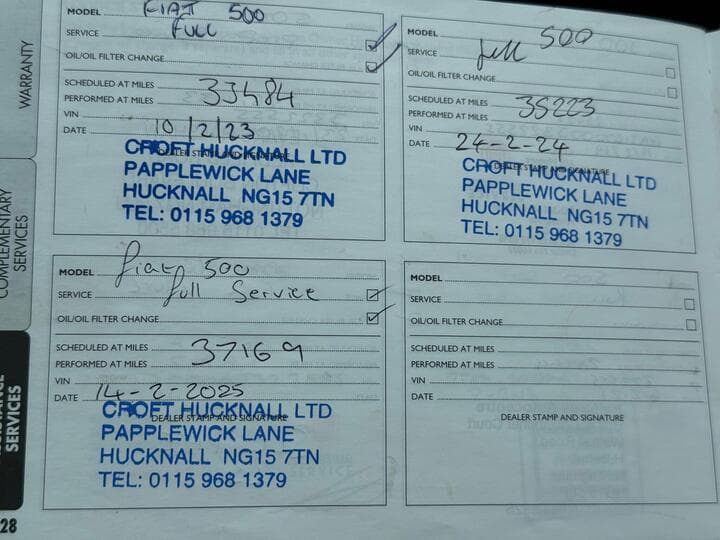 WARRANTY
COMPLEMENTARY
SERVICES
SERVICES
28
MODEL FIAT 500
SERVICE FULL
OIL/OIL FILTER CHANGE
SCHEDULED AT MILES 33484
PERFORMED AT MILES
VIN
DATE 10/2/23
DEALER STAMP AND SIGNATURE
CROFT HUCKNALL LTD
PAPPLEWICK LANE
HUCKNALL NG15 7TN
TEL: 0115 968 1379
MODEL 500
SERVICE full
OIL/OIL FILTER CHANGE
SCHEDULED AT MILES 35223
PERFORMED AT MILES
VIN
DATE 24-2-24
DEALER STAMP AND SIGNATURE
CROFT HUCKNALL LTD
PAPPLEWICK LANE
HUCKNALL NG15 7TN
TEL: 0115 968 1379
MODEL fiat 500
SERVICE full Service
OIL/OIL FILTER CHANGE
SCHEDULED AT MILES 37169
PERFORMED AT MILES
VIN
DATE 14-2-2025
DEALER STAMP AND SIGNATURE
CROFT HUCKNALL LTD
PAPPLEWICK LANE
HUCKNALL NG15 7TN
TEL: 0115 968 1379
MODEL
SERVICE
OIL/OIL FILTER CHANGE
SCHEDULED AT MILES
PERFORMED AT MILES
VIN
DATE
DEALER STAMP AND SIGNATURE